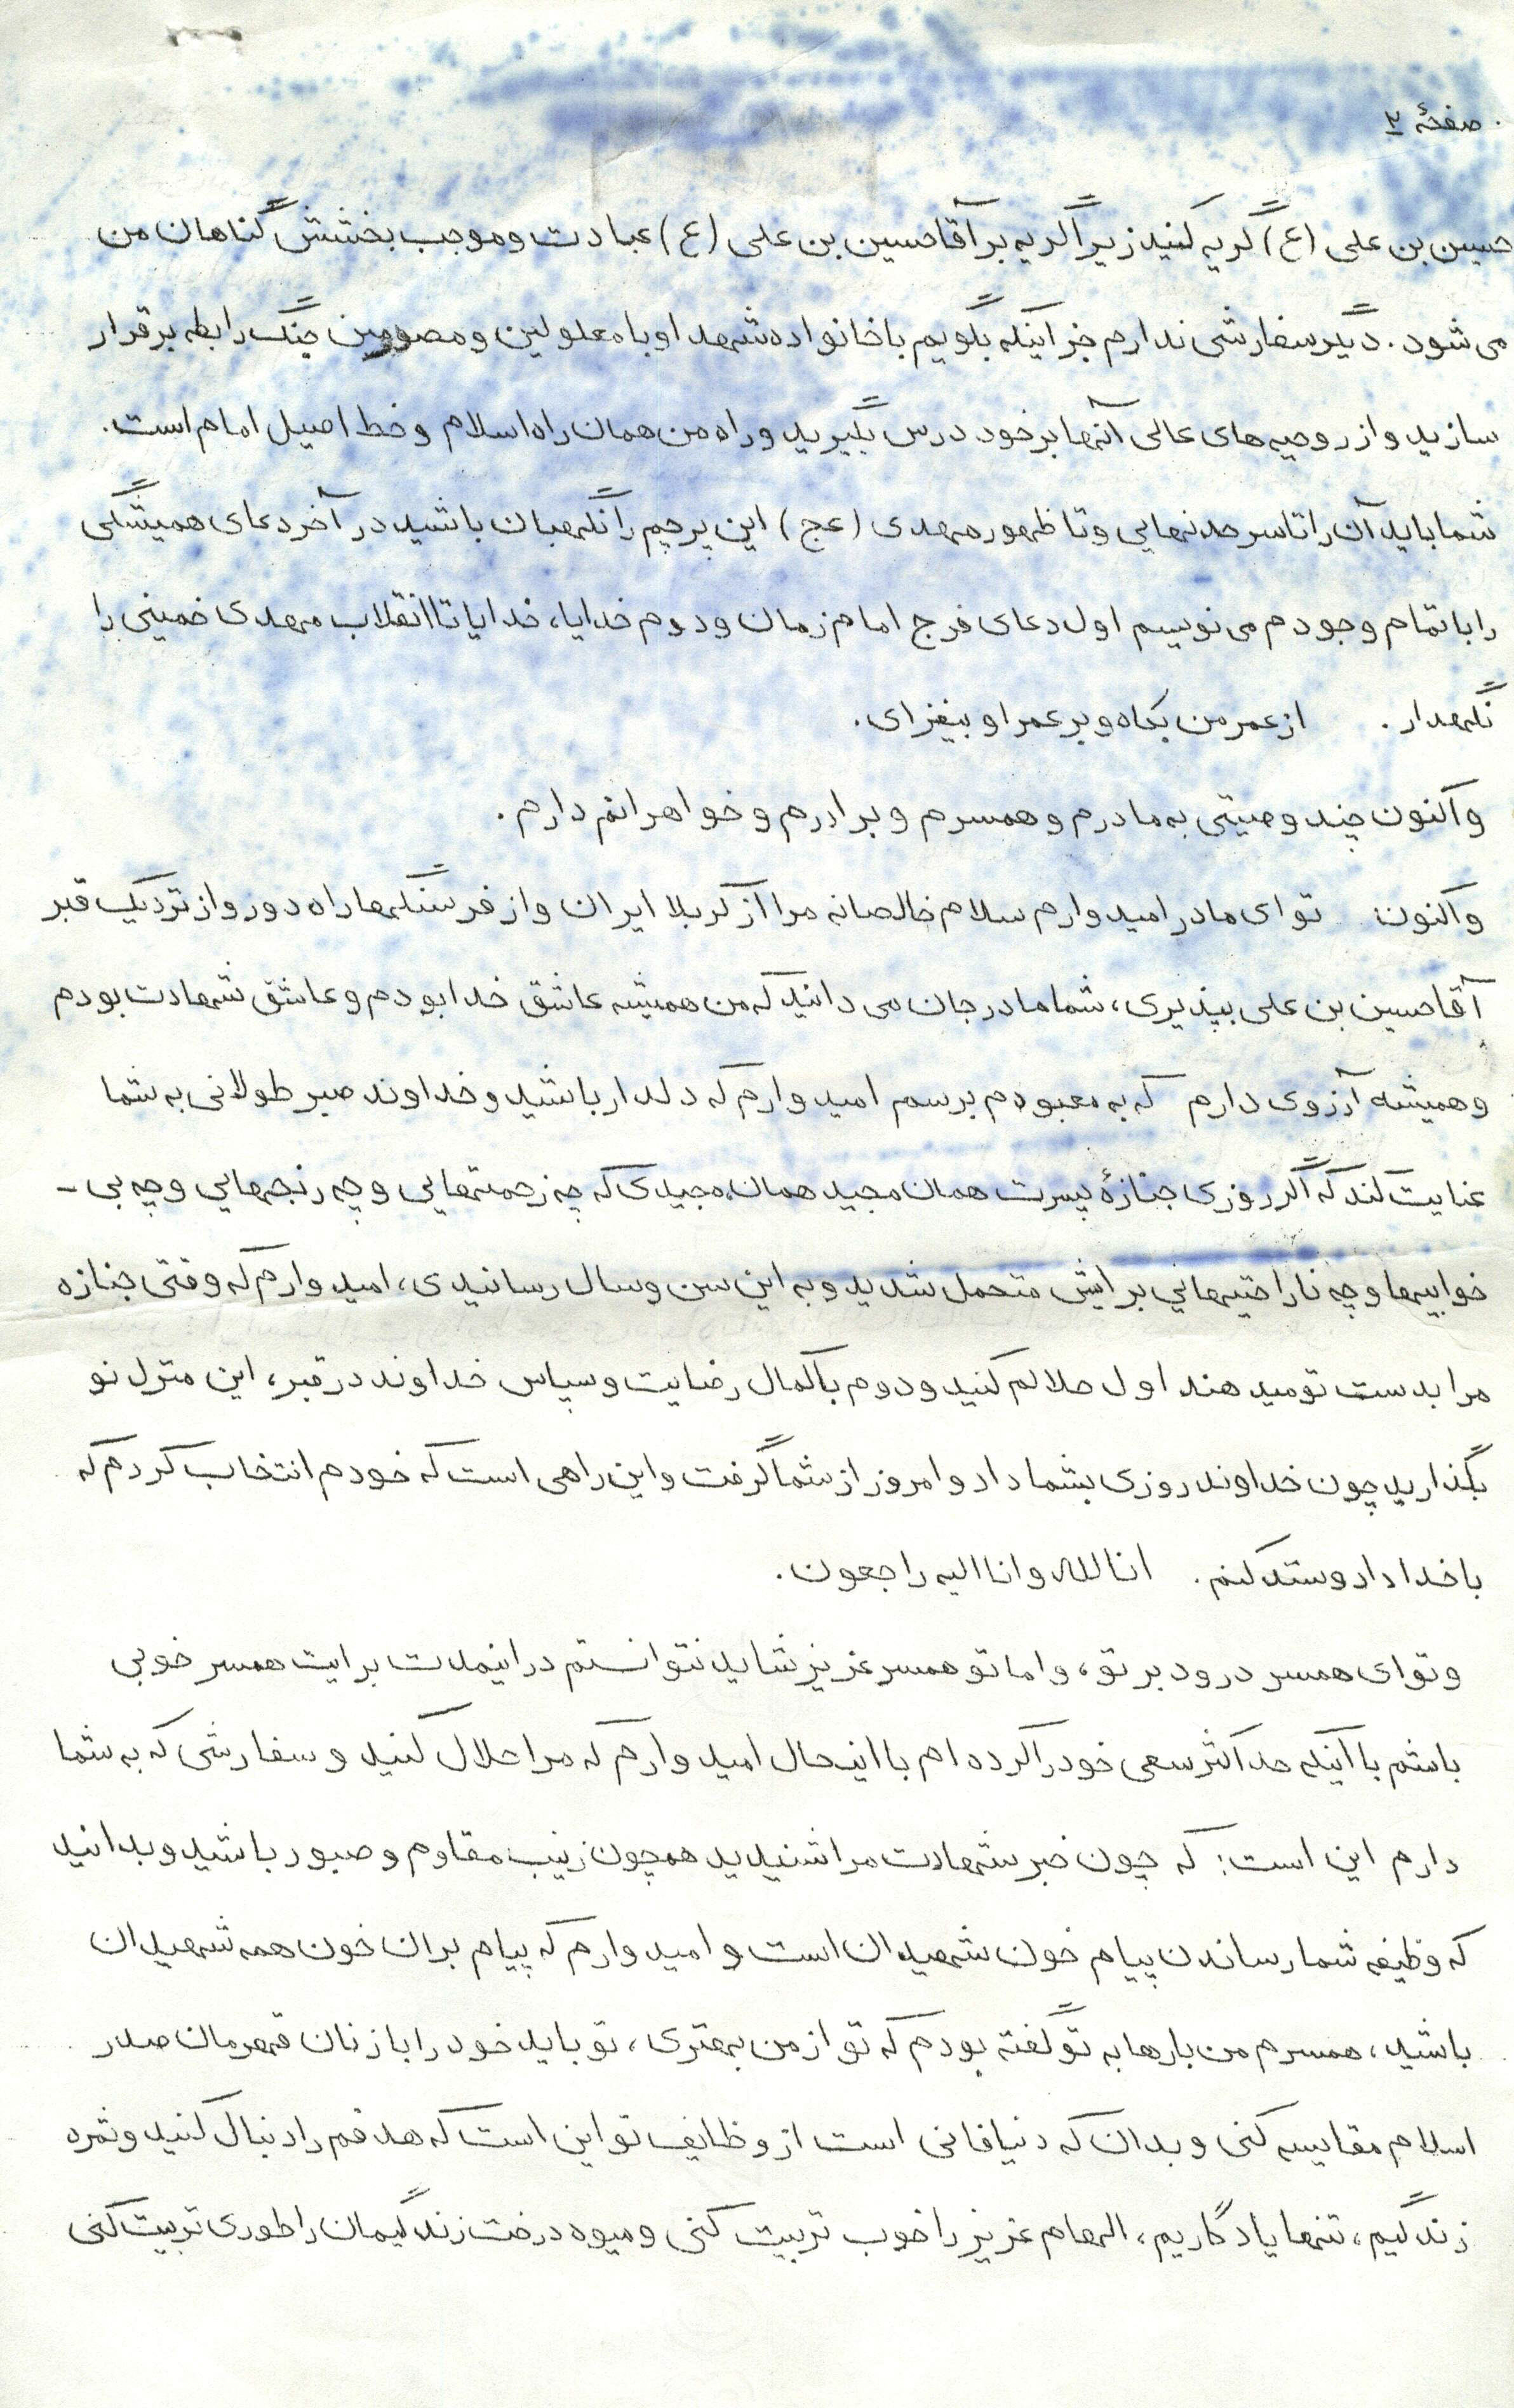 صفحهٔ ۲
حسین بن علی (ع) گریه کنید زیرا گریه بر آقا حسین بن علی (ع) عبادت و موجب بخشش گناهان من
می شود. دیگر سفارشی ندارم جز اینکه بگویم با خانواده شهدا و با معلولین و مصومین جنگ رابطه برقرار
سازید و از روحیه های عالی آنها بر خود درس بگیرید و راه من همان راه اسلام و خط اصیل امام است.
شما باید آن را تا سر حد نهایی و تا ظهور مهدی (عج) این پرچم را نگهبان باشید در آخر دعای همیشگی
را با تمام وجودم می نویسم اول دعای فرج امام زمان و دوم خدایا، خدایا تا انقلاب مهدی خمینی را
نگهدار. از عمر من بکاه و بر عمر او بیفزای.
واکنون چند وصیتی به مادرم و همسرم و برادرم و خواهرانم دارم.
واکنون تو ای مادر امیدوارم سلام خالصانه مرا از کربلا ایران و از فرسنگها راه دور و از نزدیک قبر
آقا حسین بن علی بپذیری، شما مادر جان می دانید که من همیشه عاشق خدا بودم و عاشق شهادت بودم
و همیشه آرزوی دارم که به معبودم برسم امیدوارم که دلدار باشید و خداوند صبر طولانی به شما
عنایت کند که اگر روزی جنازهٔ پسرت همان مجید همان مجیدی که چه زحمتهایی و چه رنجهایی و چه بی -
خوابیها و چه ناراحتیهایی برایش متحمل شدید و به این سن و سال رسانیدی، امیدوارم که وقتی جنازه
مرا بدست تو میدهند اول حلالم کنید و دوم با کمال رضایت و سپاس خداوند در قبر، این منزل نو
بگذارید چون خداوند روزی بشما داد و امروز از شما گرفت و این راهی است که خودم انتخاب کردم که
با خدا داد و ستد کنم. انا لله و انا الیه راجعون.
و تو ای همسر درود بر تو، و اما تو همسر عزیز شاید نتوانستم در اینمدت برایت همسر خوبی
باشم با اینکه حد اکثر سعی خود را کرده ام با اینحال امیدوارم که مرا حلال کنید و سفارشی که به شما
دارم این است: که چون خبر شهادت مرا شنیدید همچون زینب مقاوم و صبور باشید و بدانید
که وظیفه شما رساندن پیام خون شهیدان است و امیدوارم که پیام بران خون همه شهیدان
باشید، همسرم من بارها به تو گفته بودم که تو از من بهتری، تو باید خود را با زنان قهرمان صدر
اسلام مقایسه کنی و بدان که دنیا فانی است از وظایف تو این است که هدفم را دنبال کنید و ثمره
زندگیم، تنها یادگاریم، الهام عزیز را خوب تربیت کنی و میوه درخت زندگیمان را طوری تربیت کنی